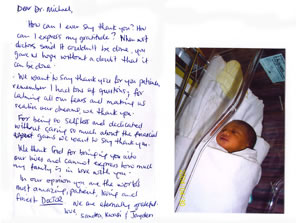 Dear Dr. Michael,
How can I ever say thank you? How
can I express my gratitude? When most
doctors said it couldn't be done, you
gave us hope without a doubt that it
can be done.
We want to say thank you for your patience,
remember I had tons of questions, for
calming all our fears and making us
realize our dreams, we thank you.
For being so selfless and dedicated
without caring so much about the financial
gains we want to say thank you.
We thank God for bringing you into
our lives and cannot express how much
my family is in love with you.
In our opinion you are the worlds
most amazing, patient, loving and
Doctor
We are eternally grateful
love
Sandra, &